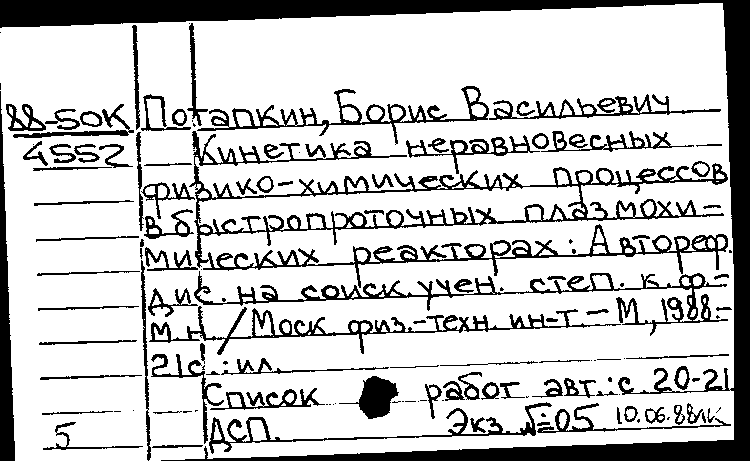 88-50К Потапкин, Борис Васильевич
4552 Кинетика неравновесных
физико-химических процессов
в быстропроточных плазмохи-
мических реакторах : Автореф.
дис. на соиск. учен. степ. к. ф.-
м.н. / Моск. физ.-техн. ин-т. – М., 1988.-
21с. : ил.
Список работ авт.: с. 20-21.
5 ДСП. Экз. №05 10.06.88лк